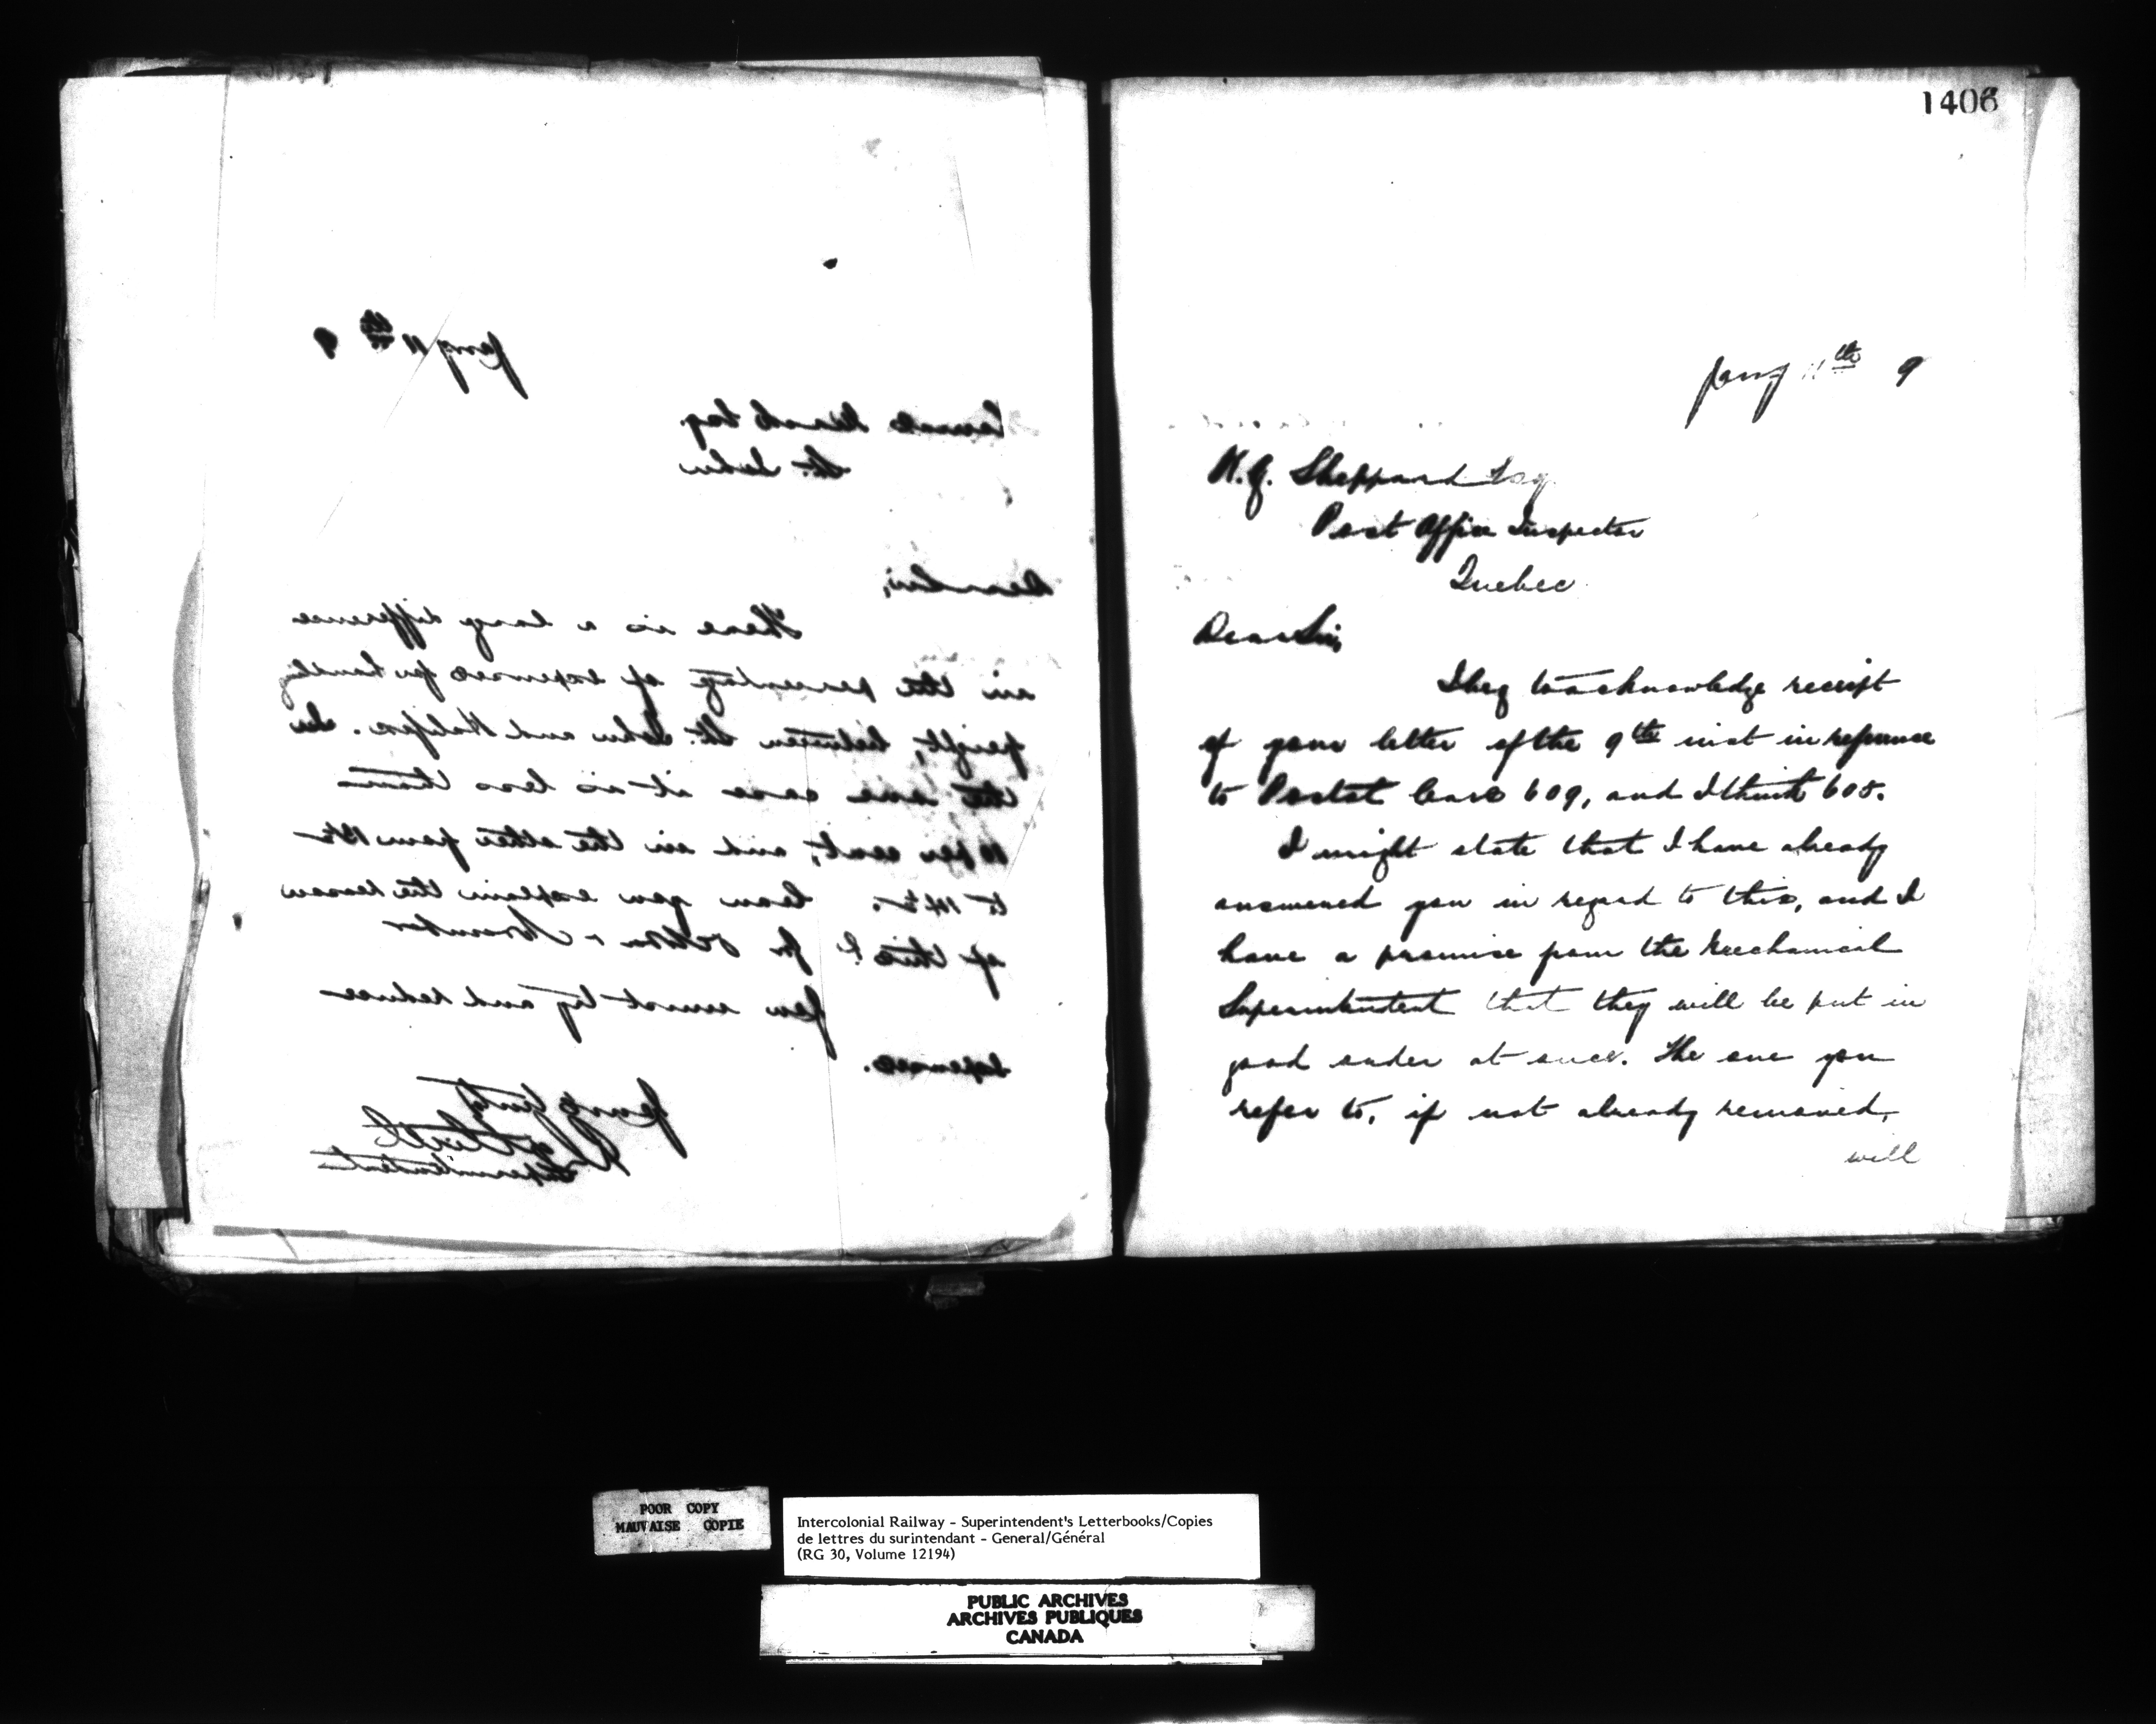 Jany 11th 9
St. John
Dear Sir,
There is a large difference
in the percentage of expenses for handling
freight, between St. John and Halifax. In
the one case it is less than
10 per cent, and in the other from
to Can you explain the reason
of this? for October & November
You must try and reduce
expenses.
Yours truly
Superintendent
1406
Jany 11th 9
Sheppard Esq
Post Office Inspector
Quebec
Dear Sir,
I beg to acknowledge receipt
of your letter of the 9th inst in reference
to Postal Cars 609, and I think 608.
I might state that I have already
answered you in regard to this, and I
have a promise from the Mechanical
Superintendent that they will be put in
good order at once. The one you
refer to, if not already removed,
will
POOR COPY
MAUVAISE COPIE
Intercolonial Railway - Superintendent's Letterbooks/Copies
de lettres du surintendant - General/Général
(RG 30, Volume 12194)
PUBLIC ARCHIVES
ARCHIVES PUBLIQUES
CANADA